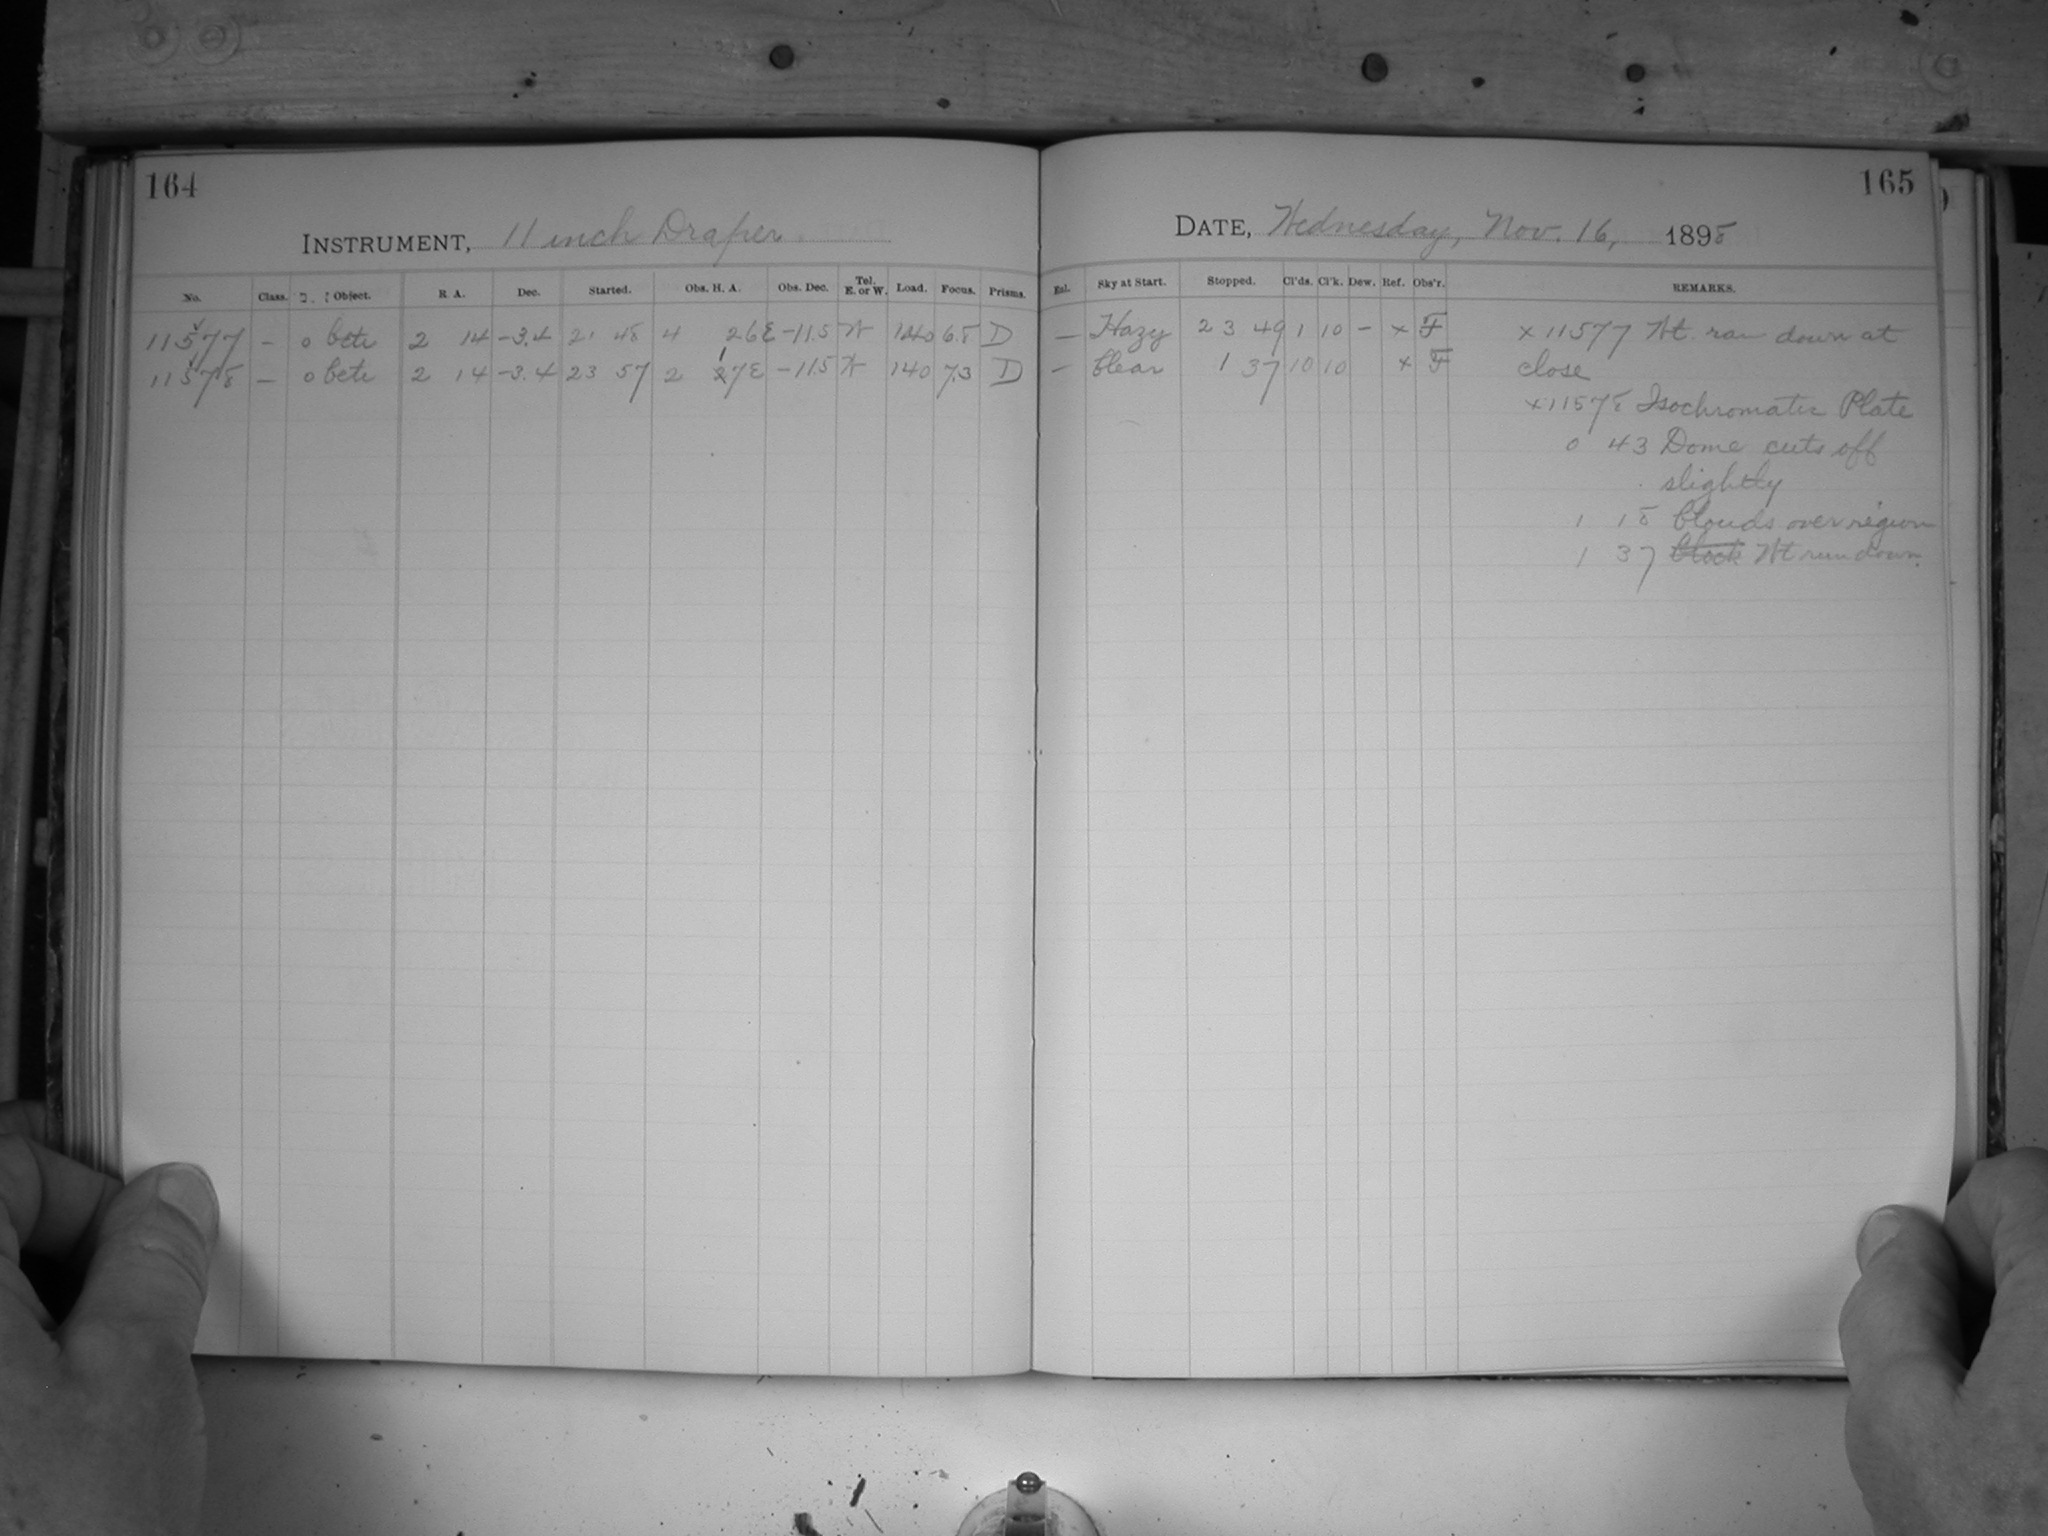 164
INSTRUMENT, 11 inch Draper
No. Class. Object. R. A. Dec. Started. Obs. H. A. Obs. Dec. Tel. E. or W. Load. Focus. Prisms.
11577 – o Ceti 2 14 -3.4 21 48 4 26E -11.5 W 140 6.8 D
11578 – o Ceti 2 14 -3.4 23 57 2 17E -11.5 W 140 7.3 D
165
DATE, Wednesday, Nov. 16, 1898
Ext. Sky at Start. Stopped. Cl'ds. Cl'k. Dew. Ref. Obs'r. REMARKS.
— Hazy 23 49 1 10 – x F x 11577 Wt. ran down at
— Clear 1 37 10 10 x F close
x11578 Isochromatic Plate
0 43 Dome cuts off
slightly
1 18 Clouds over region
1 37 Clock Wt run down.